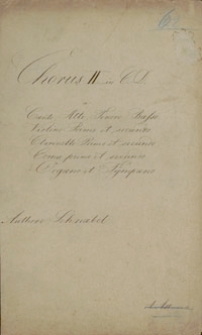 Chorus II in C D
a
Canto Alto Tenore Basso
Violino Primo et secundo
Clarinetto Primo et secundo
Cornu primo et secundo
Organo et Tympano
Authore Schnabel